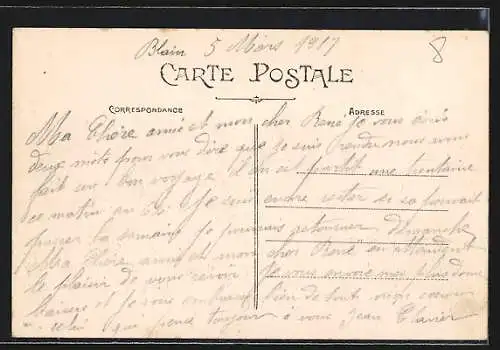 Blain 5 Mars 1917
8
CARTE POSTALE
CORRESPONDANCE
ADRESSE
Ma Chère amie et mon cher René je vous écris
deux mots pour vous dire que je suis rendu nous avons
fait un bon voyage il en est partit une trentaine
ce matin je suis encore rester si se pouvait
passer la semaine je pourrais retourner dimanche
Ma Chère amie et mon cher René en attendant
le plaisir de vous revoir je vous envoie mes plus doux
baisers et je vous embrasse bien de tout mon coeur
celui qui pense toujours à vous Jean